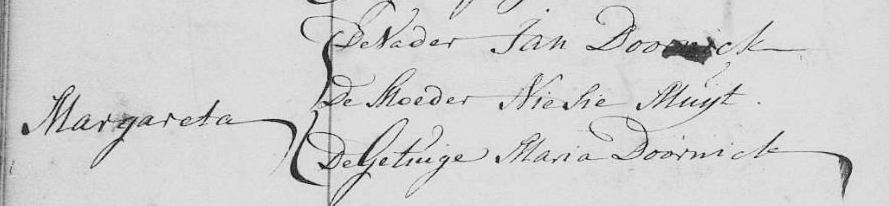 De Vader Jan Doornick
De Moeder Niesie Muijt.
Margareta
De Getuige Maria Doornick